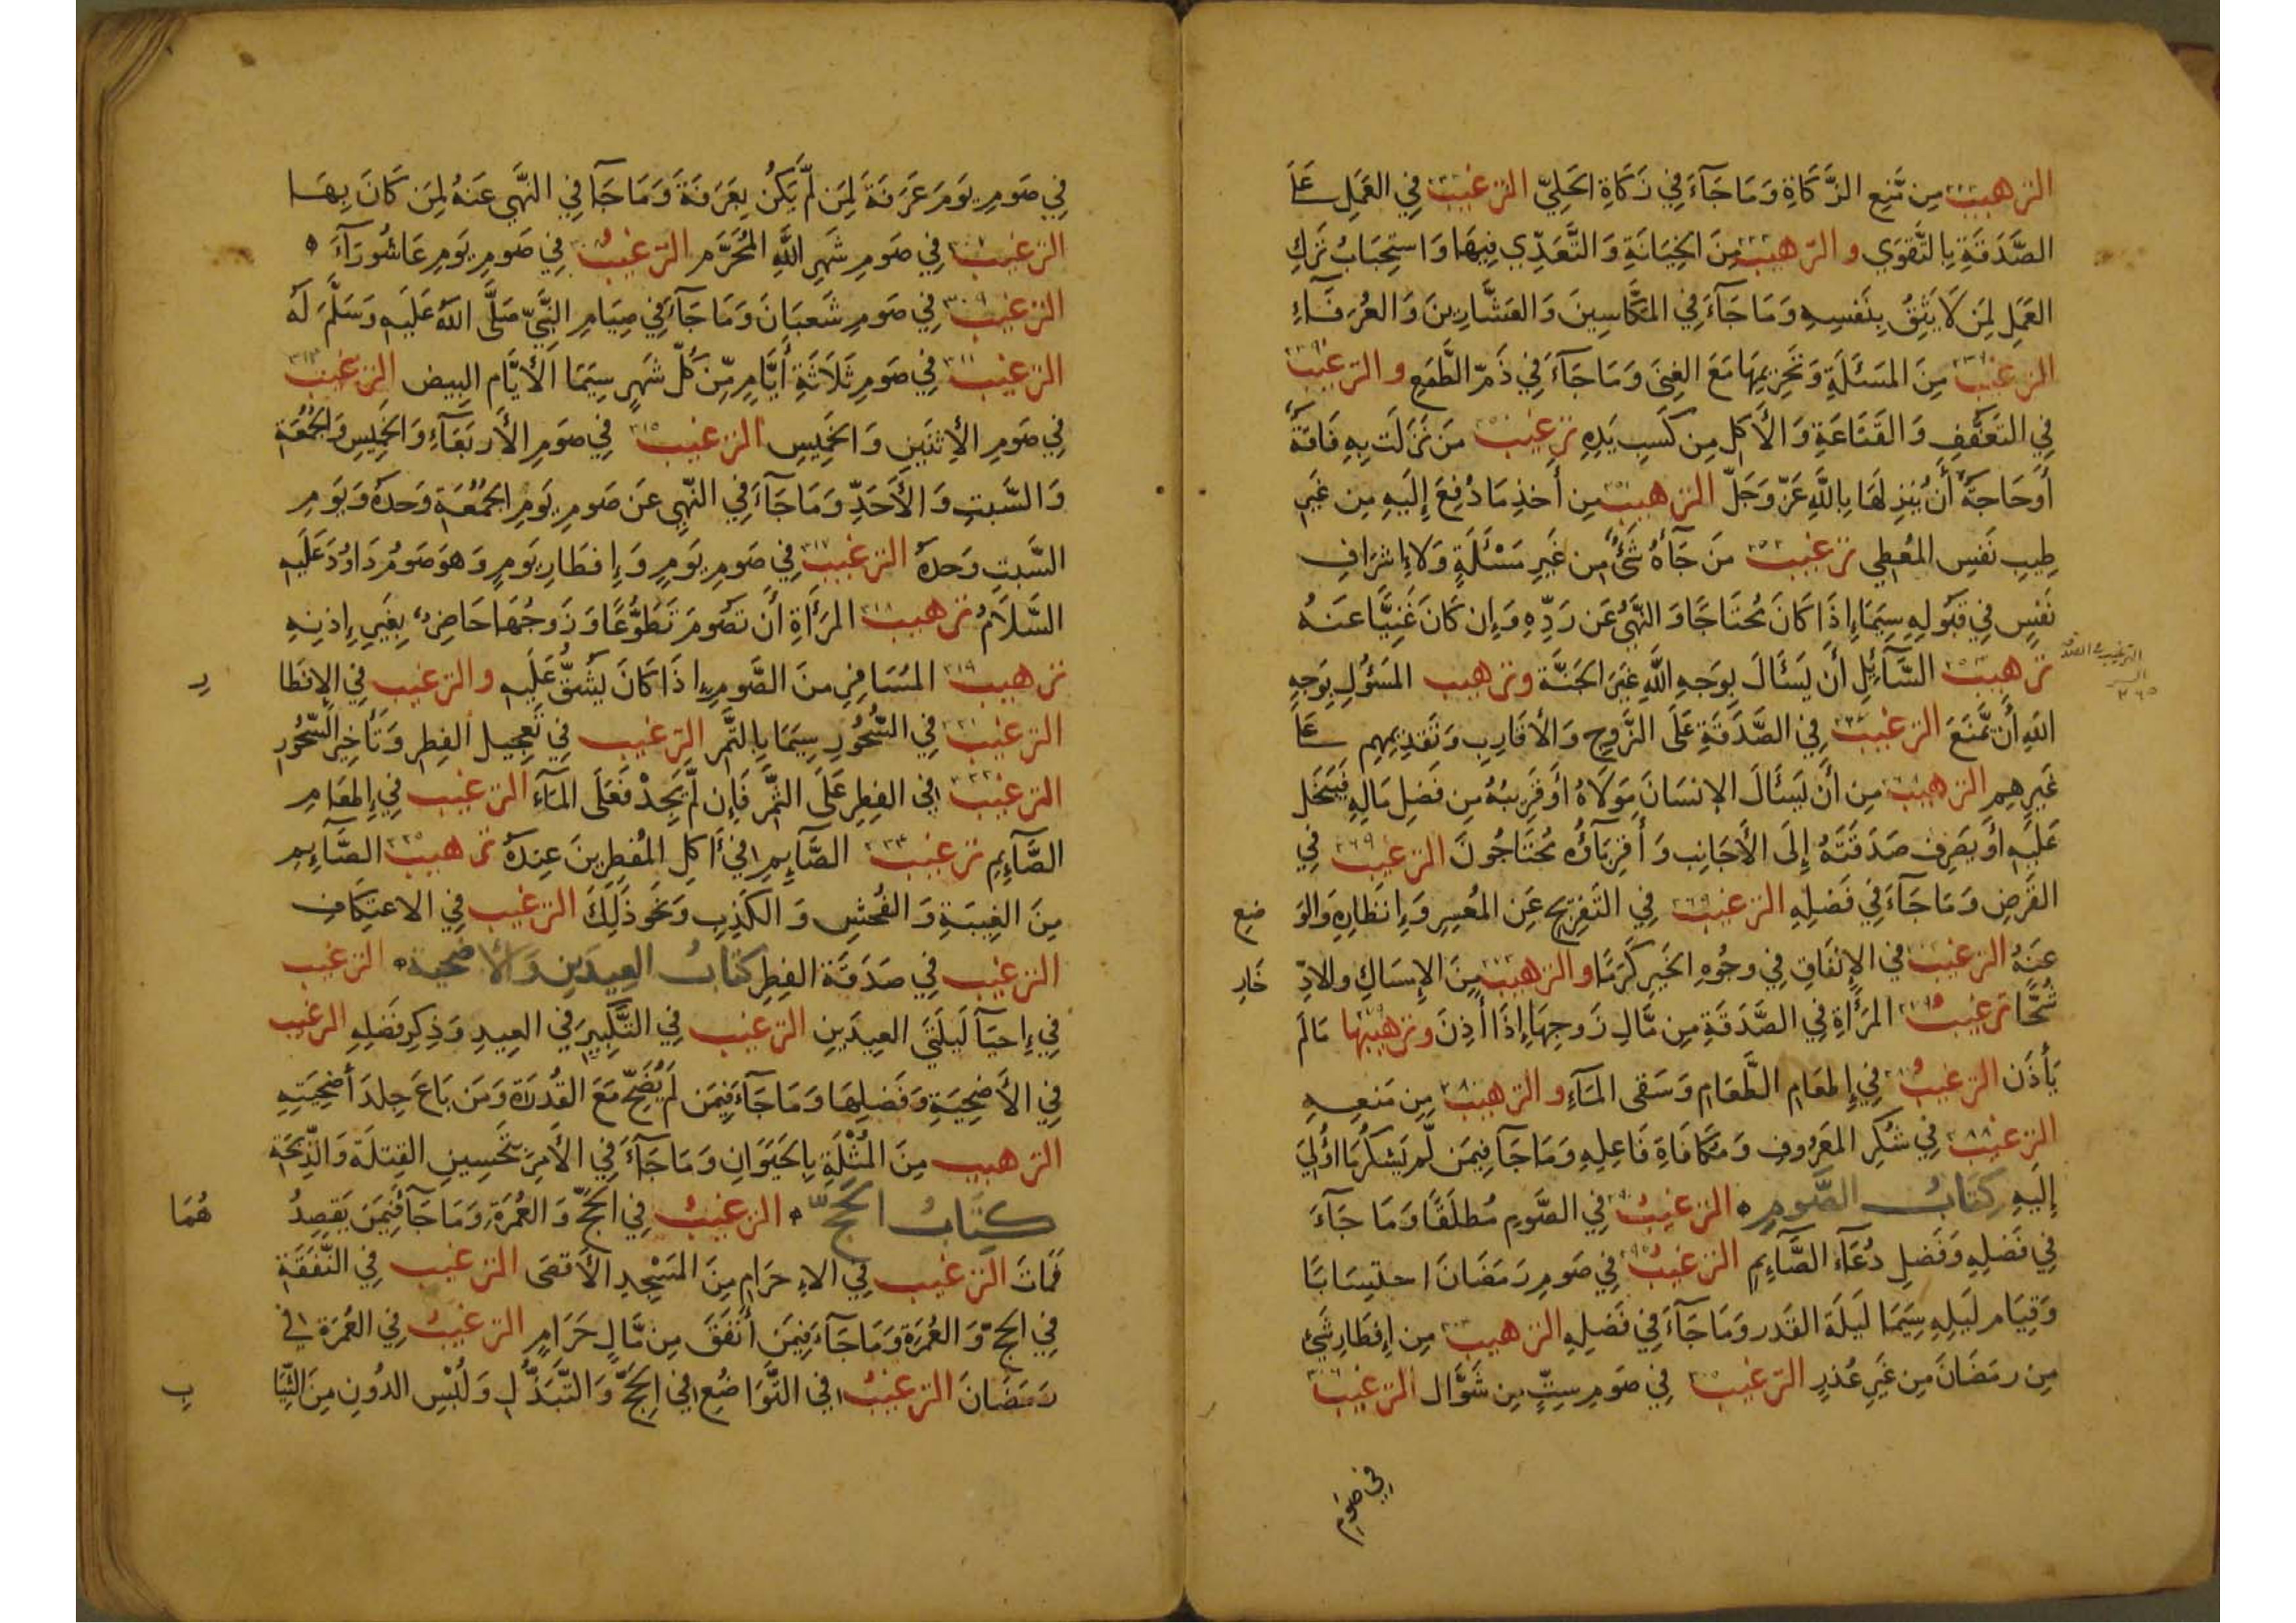 الترهيب مِن مَّنعِ الزَّكَاةِ وَمَا جَآءَ فِي زَكَاةِ الحَلِيِّ الترغيب فِي العَمَلِ عَلَى
الصَّدَقَةِ بِالتَّقوَي و الترهيب مِنَ الخِيَانَةِ وَالتَّعَدِّي فِيهَا وَاستِحبَابُ تَركِ
العَمَلِ لِمَن لَا يَثِقُ بِنَفسِهِ وَمَا جَآءَ فِي المَكَّاسِينَ وَالعَشَّارِينَ وَالعُرَفَآءِ
الترغيب مِنَ المَسئَلَةِ وَتَحرِيمِهَا مَعَ الغِنَى وَمَا جَآءَ فِي ذَمِّ الطَّمَعِ و الترغيب
فِي التَعَفُّفِ وَالقَنَاعَةِ وَالأَكلِ مِن كَسبِ يَدِهِ ترغيب مَن نَزَلَت بِهِ فَاقَةٌ
أَوحَاجَةٌ أَن يُنزِلَهَا بِاللَّهِ عَزَّ وَجَلَّ الترهيب مِن أَخذِ مَا دُفِعَ إِلَيهِ مِن غَيرِ
طِيبِ نَفسِ المُعطِي ترغيب مَن جَآءَهُ شَئٌ مِن غَيرِ مَسْئَلَةٍ وَلَا إِشرَافِ
نَفسٍ فِي قَبُولِهِ سِيَّمَا إِذَا كَانَ مُحتَاجًا وَالنَّهيُ عَن رَدِّهِ وَإِن كَانَ غَنِيًّا عَنهُ
ترهيب السَّآئِلِ أَن يَسئَالَ بِوَجهِ اللَّهِ غَيرَ الجَنَّةِ وترهيب المَسؤُلِ بِوَجهِ
اللهِ أَن تَّمنَعَ الترغيب فِي الصَّدَقَةِ عَلَى الزَّوجِ وَالأَقَارِبِ وَتَقدِيمِهِم عَلَى
غَيرِهِم الترهيب مِن أَن يَسئَالَ الإنسَانَ مَولَاهُ أَو قَرِيبُهُ مِن فَضلِ مَالِهِ فَيَبخَل
عَلَيهِ أَو يَصرِف صَدَقَتَهُ إِلَى الأَجَانِب وَأَقرِبَاؤُه مُحتَاجُونَ الترغيب ٢٦٩ فِي
القَرضِ وَمَا جَآءَ فِي فَضلِهِ الترغيب فِي التَفرِيجِ عَنِ المُعسِرِ وَإِنظَارِهِ وَالوَ ضِعِ
عَنهُ الترغيب فِي الإِنفَاقِ فِي وجُوهِ الخَيرِ كَرَمًا و الترهيب مِنَ الإِمسَاكِ والادِّ خَارِ
شُحًّا ترغيب المَرأَةِ فِي الصَّدَقَةِ مِن مَّالِ زَوجِهَا إِذَا أَذِنَ وترهيبها مَالَم
يَأذَن الترغيب فِي إِطعَامِ الطَّعَامِ وَسَقى المَآءِ و الترهيب مِن مَنعِهِ
الترغيب فِي شُكرِ المَعرُوفِ وَمُكَافَاةِ فَاعِلِهِ وَمَا جَآ فِيمَن لَّم يَشكُر مَا اُولِيَ
إِلَيهِ كِتَابُ الصَّومِ الترغيبُ فِي الصَّومِ مُطلَقًا وَمَا جَآءَ
فِي فَضلِهِ وَفَضلِ دُعَآءِ الصَّآئِمِ الترغيبُ فِي صَومِ رَمَضَانَ احتِسَابًا
وَقِيَامِ لَيلِهِ سِيَّمَا لَيلَةَ القَدرِ وَمَا جَآءَ فِي فَضلِهِ الترهيب مِن إِفطَارِ شَئٍ
مِن رمَضَانَ مِن غَيرِ عُذرٍ الترغيب فِي صَومِ سِتٍّ مِن شَوَّال الترغيب
فِي صَومِ
فِي صَومِ يَومَ عَرَفَةَ لِمَن لَّم يَكُن بِعَرَفَةَ وَمَا جَآ فِي النَّهي عَنهُ لِمَن كَانَ بِهَا
الترغيب فِي صَومِ شَهرِ اللَّهِ المُحَرَّمِ الترغيبُ فِي صَومِ يَومِ عَاشُورَآءَ
الترغيب ٣٠٩ فِي صَومِ شَعبَانَ وَمَا جَآءَ فِي صِيَامِ النَّبِيِّ صَلَّى اللهُ عَلَيهِ وَسَلَّمَ لَهُ
الترغيب ٣١١ فِي صَومِ ثَلَاثَةِ أَيَّامٍ مِّن كُلِّ شَهرٍ سِيَّمَا الأَيَّامِ البِيض الترغيب
فِي صَومِ الإِثنَينِ وَالخَمِيسِ الترغيب ٣١٥ فِي صَومِ الأَربَعَآءِ وَالخَمِيسِ وَالجُمُعَةِ
وَالسَّبتِ وَالأَحَدِّ وَمَا جَآءَ فِي النَّهيِ عَن صَومِ يَومِ الجُمُعَةِ وَحدَهُ وَيَومِ
السَّبتِ وَحدَهُ الترغيب ٣١٧ فِي صَومِ يَومٍ وَإِفطَارِ يَومٍ وَهوَ صَومُ دَاوُدَ عَلَيهِ
السَّلَامُ ترهيب ٣١٨ المَرأَةِ أَن تَصُومَ تَطَوُّعًا وَزَوجُهَا حَاضِرٌ بِغَيرِ إِذنِهِ
ترهيب ٣١٩ المُسَافِرِ مِنَ الصَّومِ إِذَا كَانَ يَشُقُّ عَلَيهِ و الترغيب فِي الإِفطَا رِ
الترغيب فِي السُّحُورِ سِيَّمَا بِالتَّمرِ الترغيب فِي تَعجِيلِ الفِطرِ وَتَأخِيرِ السُّحُورِ
الترغيب فِي الفِطرِ عَلَى التَّمرِ فَإِن لَّم يَجِدْ فَعَلَى المَآءِ الترغيب فِي إِطعَامِ
الصَّآئِمِ ترغيب الصَّآئِمِ فِي أَكلِ المُفطِرِينَ عِندَهُ ترهيب ٣٢٥ الصَّآئِمِ
مِنَ الغِيبَةِ وَالفُحشِ وَالكَذِبِ وَنَحوِ ذَلِكَ الترغيب فِي الاعتِكَافِ
الترغيب فِي صَدَقَةِ الفِطرِ كِتَابُ العِيدَينِ وَالأُضحِيَةِ الترغيب
فِي إِحيَآ لَيلَتَيِ العِيدَينِ الترغيب فِي التَّكبِيرِ فِي العِيدِ وَذِكرِ فَضلِهِ الترغيب
فِي الأُضحِيَةِ وَفَضلِهَا وَمَا جَآءَ فِيمَن لَم يُضَحِّ مَعَ القُدرَةِ وَمَن بَاعَ جِلدَ أُضحِيَتِهِ
الترهيب مِنَ المُثْلَةِ بِالحَيَوَانِ وَمَا جَآءَ فِي الأَمرِ بِتَحسِينِ القِتلَةِ وَالذِّبحَةِ
كِتَابُ الحَجِّ الترغيبُ فِي الحَجِّ وَالعُمرَةِ وَمَا جَآ فِيمَن يَقصِدُ هُمَا
فَمَاتَ الترغيب فِي الاِحرَامِ مِنَ المَسْجِدِ الأَقصَى الترغيب فِي النَّفَقَةِ
فِي الحَجِّ وَالعُمرَةِ وَمَا جَآءَ فِيمَن أَنفَقَ مِن مَّالٍ حَرَامٍ الترغيبُ فِي العُمرَةِ فِي
رَمَضَانَ الترغيبُ فِي التَّوَاضُعِ فِي الحَجِّ وَالتَّبَذُّلِ وَلُبْسِ الدُونِ مِنَ الثِّيَا بِ